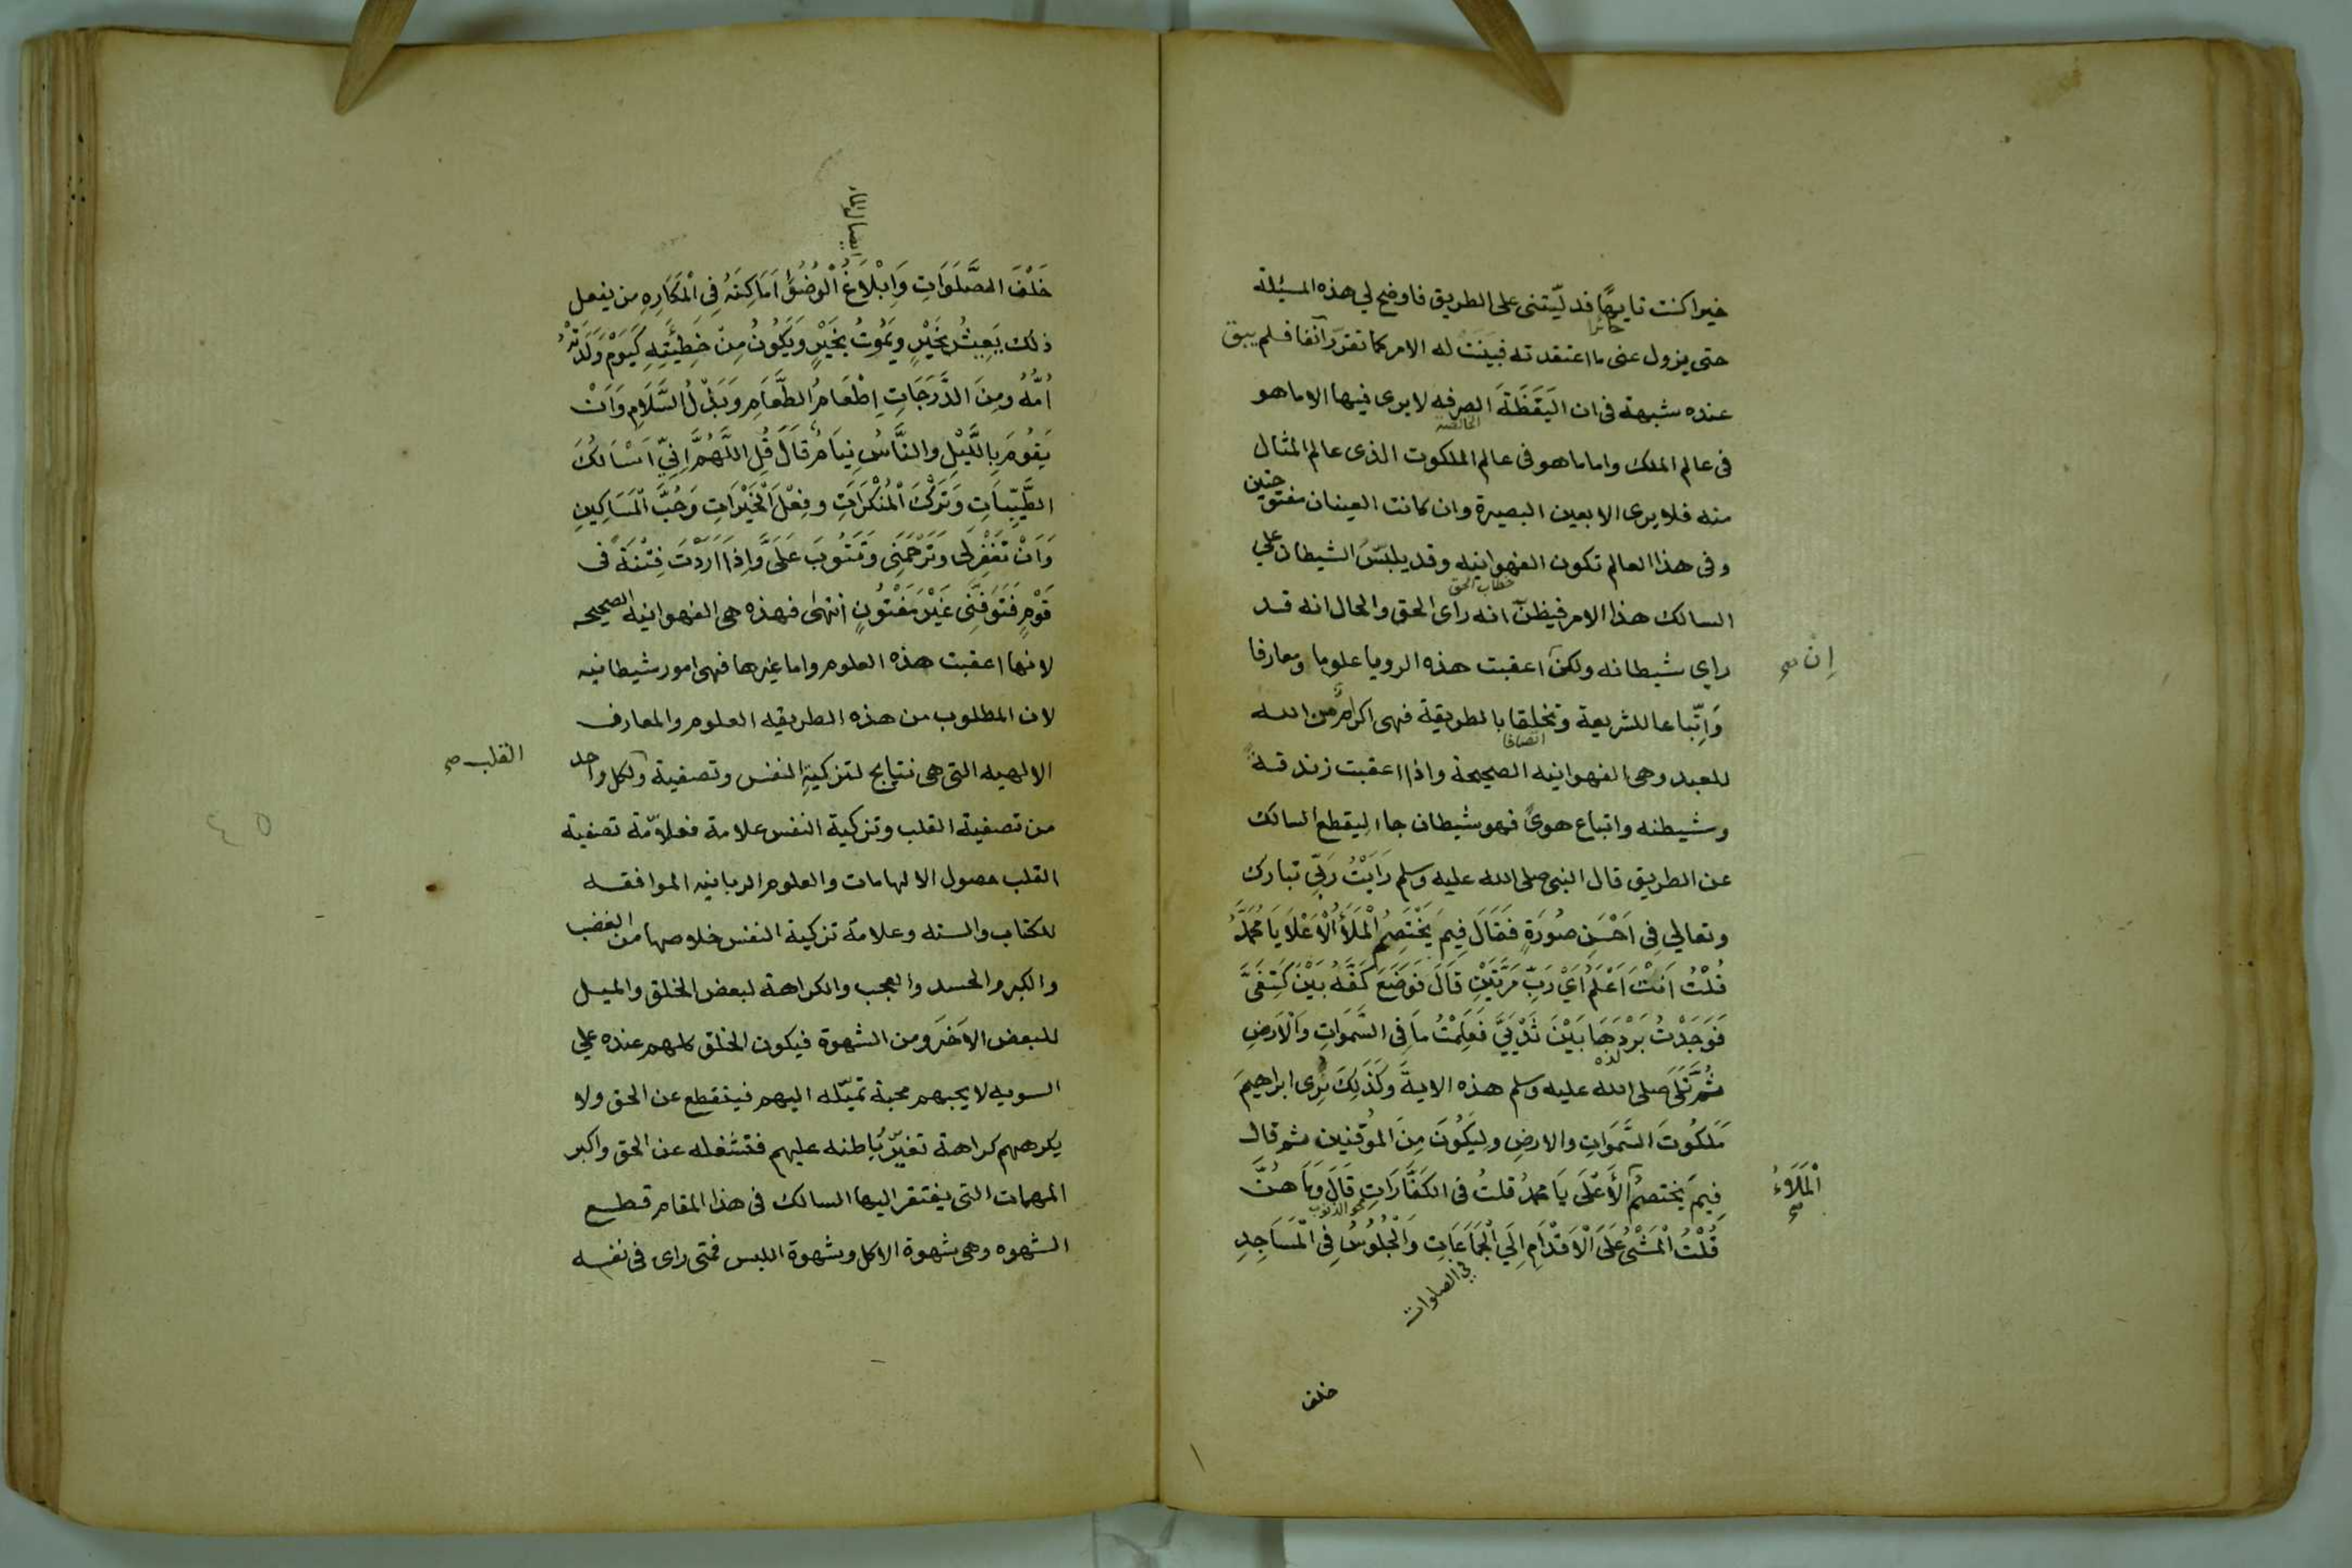 خيرا كنت تايهًا فدليّتنى على الطريق فاوضح لي هذه المسئلة
حائرا
حتى يزول عنى ما اعتقدته فبينت له الامر كما تقرّر آنفا فلم يبق
عنده شبهة فى ان اليَقَظَةَ الصرفه لا يرى فيها الا ما هو
الخالصة
فى عالم الملك واما ما هو فى عالم الملكوت الذى عالم المثال
منه فلا يرى الا بعين البصيرة وان كانت العينان مفتوحتين
وفى هذا العالم تكون الفهوانيه وقد يلبّسُ الشيطان علي
خطاب الحق
السالك هذا الامر فيظنّ انه راى الحق والحال انه قد
راي شيطانه ولكن اعقبت هذه الرويا علوما ومعارفا
إن صح
وَاِتِّباعا للشريعة وتخلقا بالطريقة فهى اكرامٌ من الله
اتصافا
للعبد وهى الفهوانيه الصحيحة واذا اعقبت زندقة
وشيطنه واتباع هوىً فهو شيطان جاء ليقطع السالك
عن الطريق قال النبى صلى الله عليه وسلم رَاَيْتُ رَبِّي تبارك
وتعالي فِى اَحْسَنِ صُورَةٍ فَقَالَ فِيمَ يَخْتَصِمُ الْمَلَأُ الْاَعْلَا يَا مُحَمَّدُ
قُلْتُ اَنْتَ اَعْلَمُ اَيْ رَبِّ مَرَّتَيْنِ قَالَ فَوَضَعَ كَفَّهُ بَيْنَ كَتِفَىَّ
فَوَجَدْتُ بَرْدَهَا بَيْنَ ثَدْيَيَّ فَعَلِمْتُ مَا فِى السَّمَوَاتِ وَالْاَرْضِ
لذه
ثُمَّ تَلَى صلى الله عليه وسلم هذه الاية وَكَذَلِكَ نُرِى ابراهيمَ
مَلَكُوتَ السَّمَوَاتِ والارضِ وَلِيَكُونَ مِنَ الموُقنين ثم قال
فِيمَ يَختصمُ الأَعْلَى يَا محمدُ قلتُ فى الكَفَّارَاتِ قَالَ وَمَا هُنَّ
الْمَلَاءُ صح
محو الذنوب
قُلْتُ الْمَشْىُ عَلَى الْاَقْدَامِ اِلَي الْجَمَاعَاتِ وَالْجُلُوسُ فِى الْمَسَاجِدِ
في الصلوات
خلف
ايصال الماء
خَلْفَ الصَّلَوَاتِ وَاِبْلَاغُ الْوُضُوْءِ اَمَاكِنَهُ فِى الْمَكَارِهِ من يفعل
ذلك يَعِيشُ بِخَيْرٍ وَيَمُوتُ بِخَيْرٍ وَيَكُونُ مِنْ خَطِيْئَتِهِ كَيَوْمَ وَلَدَتْهُ
اُمُّهُ ومِنَ الدَّرَجَاتِ اِطْعَامُ الطَّعَامِ وَبَذْلُ السَّلَامِ وَاَنْ
يَقُومَ بِاللَّيْلِ والنَّاسُ نِيَامٌ قَالَ قُلِ اللَّهُمَّ اِنِّي اَسْاَلُكَ
الطَّيِّبَاتِ وَتَرْكَ الْمُنْكَرَاتِ وفِعْلَ الْخَيْرَاتِ وَحُبَّ الْمَسَاكِينِ
وَاَنْ تَغْفِرَ لِى وَتَرْحَمَنِى وَتَتُوبَ عَلَىَّ وَاِذَا اَرَدْتَ فِتْنَةً فى
قَوْمٍ فَتَوَفَّنِى غَيْرَ مَفْتُونٍ انتهى فهذه هى الفهوانيه الصحيحه
لانها اعقبت هذه العلوم واما غيرها فهى امور شيطانيه
لان المطلوب من هذه الطريقه العلوم والمعارف
الالهيه التى هى نتايج لتزكيةِ النفس وتصفية ولكل واحد
القلب صح
من تصفية القلب وتزكية النفس علامة فعلامة تصفية
القلب حصول الالهامات والعلوم الربانيه الموافقه
للكتاب والسنه وعلامة تزكية النفس خلاصها من الغضب
والكبر والحسد والعجب والكراهة لبعض الخلق والميل
للبعض الاَخَر ومن الشهوة فيكون الخلق كلهم عنده علي
السويه لا يحبهم محبة تميّله اليهم فينقطع عن الحق ولا
يكرههم كراهة تغيّرُ باطنه عليهم فتشغله عن الحق واكبر
المهمات التى يفتقر اليها السالك فى هذا المقام قطع
الشهوه وهى شهوة الاكل وشهوة اللبس فمتى راى فى نفسه
٤٥